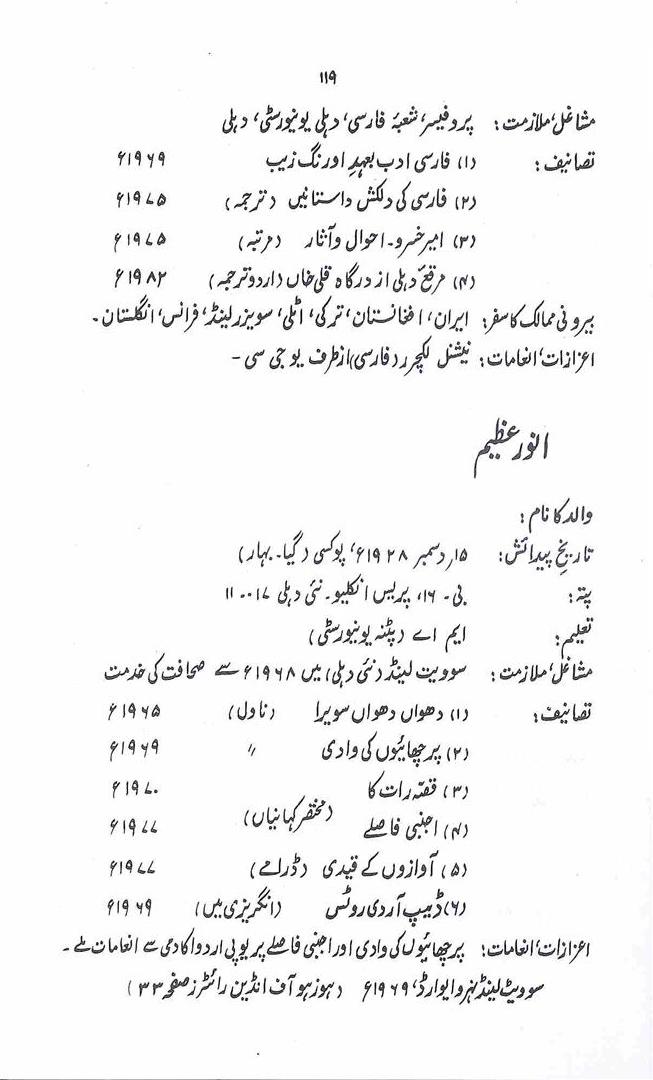 ۱۱۹
مشاغل، ملازمت: پروفیسر، شعبۂ فارسی، دہلی یونیورسٹی، دہلی
تصانیف: (۱) فارسی ادب بعہدِ اورنگ زیب ۱۹۶۹ء
(۲) فارسی کی دلکش داستانیں (ترجمہ) ۱۹۷۵ء
(۳) امیر خسرو۔ احوال و آثار (مرتبہ) ۱۹۷۵ء
(۴) مرقع دہلی از درگاہ قلی خاں (اردو ترجمہ) ۱۹۸۲ء
بیرونی ممالک کا سفر: ایران، افغانستان، ترکی، اٹلی، سویزرلینڈ، فرانس، انگلستان۔
اعزازات، انعامات: نیشنل لکچرر (فارسی) از طرف یو جی سی۔
انور عظیم
والد کا نام:
تاریخِ پیدائش: ۱۵ر دسمبر ۱۹۲۸ء، پوکسی (گیا۔ بہار)
پتہ: بی۔ ۱۶، پریس انکلیو۔ نئی دہلی ۱۱۰۰۱۷
تعلیم: ایم اے (پٹنہ یونیورسٹی)
مشاغل، ملازمت: سوویت لینڈ (نئی دہلی) میں ۱۹۶۸ء سے صحافت کی خدمت
تصانیف: (۱) دھواں دھواں سویرا (ناول) ۱۹۶۵ء
(۲) پرچھائیوں کی وادی " ۱۹۶۹ء
(۳) قصّہ رات کا ۱۹۷۰ء
(۴) اجنبی فاصلے (مختصر کہانیاں) ۱۹۷۷ء
(۵) آوازوں کے قیدی (ڈرامے) ۱۹۷۷ء
(۶) ڈیپ آر دی روٹس (انگریزی میں) ۱۹۶۹ء
اعزازات، انعامات: پرچھائیوں کی وادی اور اجنبی فاصلے پر یوپی اردو اکادمی سے انعامات ملے۔
سوویٹ لینڈ نہرو ایوارڈ، ۱۹۶۹ء (ہوز ہو آف انڈین رائٹرز صفحہ ۳۳)